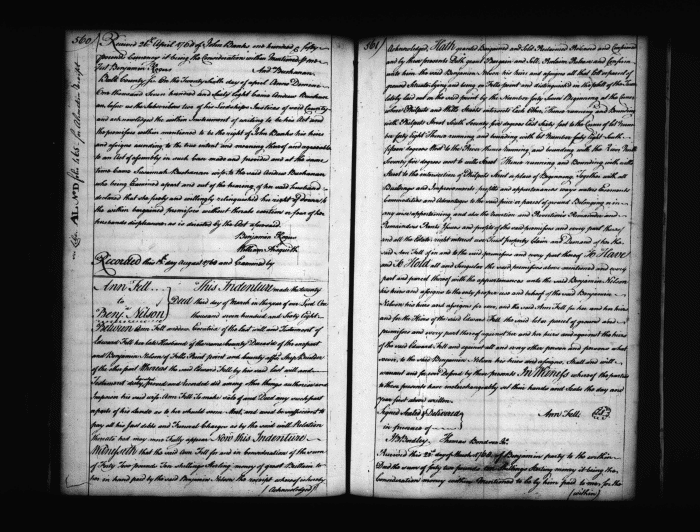 560
Received 26th April 1768 of John Banks one hundred & fifty
pounds Currency it being the Consideration within Mentioned
Test Benjamin Rogers And Buchanan
Balt County Sst On the Twenty sixth day of April Anno Domini
One thousand Seven hundred and Sixty Eight Came Andrew Buchan
an before us the Subscribers two of his Lordships Justices of said County
and acknowledged the within Instrument of writing to be his Act and
the premises within mentioned to be the right of John Banks his heirs
and assigns according to the true intent and meaning thereof and agreeable
to an Act of assembly in such case made and provided and at the same
time came Susannah Buchanan wife to the said Andrew Buchanan
who being Examined apart and out of the hearing of her said husband
declared that she freely and willingly relinquished her right of dower to
the within bargained premises without threats or fear of her
husbands displeasure as is directed by the Act aforesaid
Benjamin Rogers
William Aisquith
Recorded this day August 1768 and Examined by
Ann Fell
to
Benj. Nelson
Deed
This Indenture made the twenty
third day of March in the year of our Lord One
thousand seven hundred and Sixty Eight
Between Ann Fell Executrix of the last will and Testament of
Edward Fell her late Husband of the same County Deceased of the one part
and Benjamin Nelson of Fells Point and County affd. Ship Builder
of the other part Whereas the said Edward Fell by his said last will and
Testament duly proved and Recorded did among other things authorise and
impower his said wife Ann Fell to make sale of and Deed any such part
or parts of his Lands as to her should seem Meet and wou'd be sufficient to
pay all his just debts and Funeral Charges as by the said will Relation
thereto had may more fully appear Now this Indenture
Witnesseth that the said Ann Fell for and in Consideration of the sum
of Forty Two pounds Ten shillings Sterling money of great Brittain to
her in hand paid by the said Benjamin Nelson the receipt whereof is hereby
(Acknowledged)
561
Acknowledged, Hath granted Bargained and Sold Released and Confirmed
and by these presents Doth grant Bargain and Sell, Release and Confirm
unto him the said Benjamin Nelson his heirs and assigns all that Lot or parcel of
Ground Situate lying and being on Fells point and distinguished on the platt of the Town
lately laid out on the said point by the Number forty Seven Beginning at the
where Philpots and Wills Streets intersect Each other Thence running and Bounding
with Philpots Street South Seventy five degrees East Sixty feet to the Corner of Lot Num
ber forty Eight Thence running and bounding with lot Number forty Eight South
fifteen degrees West to the River thence running and bounding with the River North
Seventy five degrees West to Wills Street Thence running and Bounding with Wills
Street to the intersection of Philpots Street or place of Beginning Together with all
Buildings and Improvements profits and appurtenances ways waters Easements
Commodities and Advantages to the said piece or parcel of ground Belonging or in
any wise appertaining and also the reversion and Reversions Remainder and
Remainders Rents Issues and profits of the said premises and every part thereof
and all the Estate right interest use Trust property Claim and Demand of her the
said Ann Fell of in and to the said premises and every part thereof To Have
and To Hold all and Singular the said premises above mentioned and every
part and parcel thereof with the appurtenances unto the said Benjamin Nelson
his heirs and assigns to the only proper use and behoof of the said Benjamin
Nelson his heirs and assigns for ever and the said Ann Fell for her and her heirs
and for the Heirs of the said Edward Fell the said Lot or parcel of ground and
premises and every part thereof against her and her heirs and against the heirs
of the said Edward Fell and against all and every other person and persons what
soever, to the said Benjamin Nelson his heirs and assigns, Shall and will
warrant and for ever Defend by these presents In Witness whereof the parties
to these presents have interchangeably set their hands and Seals the day and
year first above written
Signed Sealed & Delivered
in presence of
Ann Fell
Thomas Bond
Received this 23d of March 1768 of Benjamin party to the within
Deed the sum of forty two pounds Ten shillings Sterling money it being the
Consideration money within Mentioned to be by him paid to me for the
(within)